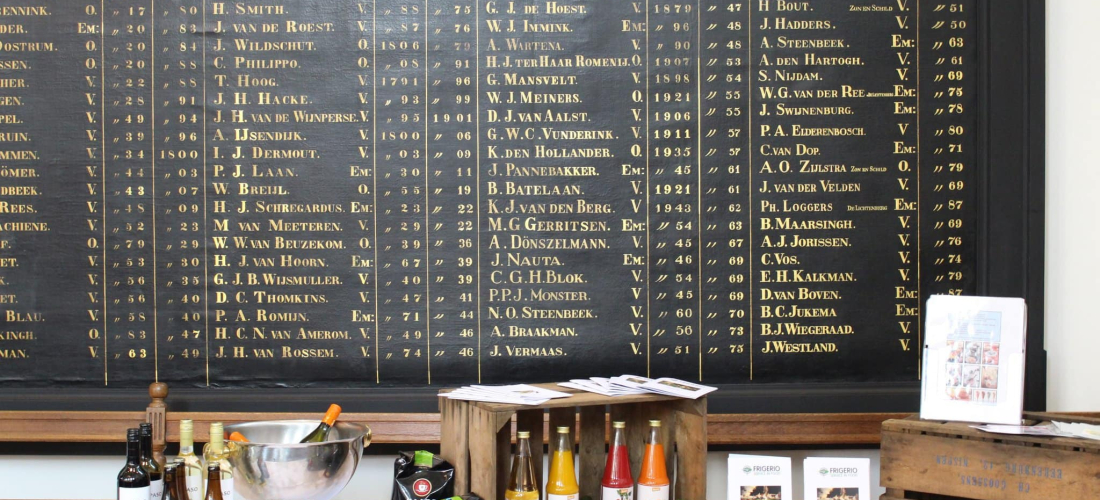 RENNINK. O. „ 17 „ 80
DER. Em: „ 20 „ 83
OOSTRUM. O. „ 20 „ 84
SSEN. O. „ 20 „ 88
HER. V. „ 22 „ 88
GEN. V. „ 28 „ 91
PEL. V. „ 49 „ 94
RUIN. V. „ 39 „ 96
MMEN. V. „ 34 1800
ÖMER. V. „ 44 „ 03
DBEEK. V. „ 43 „ 07
REES. V. „ 48 „ 09
ACHIENE. V. „ 52 „ 23
F. O. „ 79 „ 29
ET. V. „ 53 „ 30
K. V. „ 56 „ 35
ET. V. „ 56 „ 40
BLAU. V. „ 58 „ 40
KINGH. O. „ 83 „ 47
MAN. V. „ 63 „ 49
H. SMITH. V. „ 88 „ 75
J. VAN DE ROEST. V. „ 87 „ 76
J. WILDSCHUT. O. 1806 „ 79
C. PHILIPPO. O. „ 08 „ 91
T. HOOG. V. 1791 „ 96
J. H. HACKE. V. „ 93 „ 99
J. H. VAN DE WIJNPERSE. V. „ 95 1901
A. IJSENDIJK. V. 1800 „ 06
I. J. DERMOUT. V. „ 03 „ 09
P. J. LAAN. Em: „ 30 „ 11
W. BREIJL. O. „ 55 „ 19
H. J. SCHREGARDUS. Em: „ 23 „ 22
M VAN MEETEREN. V. „ 29 „ 22
W. W. VAN BEUZEKOM. O. „ 39 „ 36
H. J. VAN HOORN. Em: „ 67 „ 39
G. J. B. WIJSMULLER. V. „ 40 „ 39
D. C. THOMKINS. V. „ 47 „ 41
P. A. ROMIJN. Em: „ 71 „ 44
H. C. N. VAN AMEROM. V. „ 49 „ 46
J. H. VAN ROSSEM. V. „ 74 „ 46
G. J. DE HOEST. V. 1879 „ 47
W. J. IMMINK. Em: „ 96 „ 48
A. WARTENA. V. „ 90 „ 48
H. J. TER HAAR ROMENIJ. O. 1907 „ 53
G. MANSVELT. V. 1898 „ 54
W. J. MEINERS. O. 1921 „ 55
D. J. VAN AALST. V. 1906 „ 55
G. W. C. VUNDERINK. V. 1911 „ 57
K. DEN HOLLANDER. O. 1935 „ 57
J. PANNEBAKKER. Em: „ 45 „ 61
B. BATELAAN. V. 1921 „ 61
K. J. VAN DEN BERG. V 1943 „ 62
M. G GERRITSEN. Em: „ 54 „ 63
A. DÖNSZELMANN. V. „ 45 „ 67
J. NAUTA. Em: „ 46 „ 69
C. G. H. BLOK. V. „ 54 „ 69
P. P. J. MONSTER. V „ 45 „ 69
N. O. STEENBEEK. V. „ 60 „ 70
A. BRAAKMAN. V. „ 56 „ 73
J. VERMAAS. V. „ 51 „ 75
H BOUT. ZON EN SCHILD V. „ 51
J. HADDERS. V. „ 50
A. STEENBEEK. Em: „ 63
A. DEN HARTOGH. V. „ 61
S. NIJDAM. V. „ 69
W. G. VAN DER REE Em: „ 75
J. SWIJNENBURG. Em: „ 78
P. A. ELDERENBOSCH. V „ 80
C. VAN DOP. Em: „ 71
A. O. ZIJLSTRA ZON EN SCHILD O. „ 79
J. VAN DER VELDEN V. „ 69
PH. LOGGERS DE LICHTENBERG Em: „ 87
B. MAARSINGH. V. „ 69
A. J. JORISSEN. V. „ 76
C. VOS. V. „ 74
E. H. KALKMAN. V. „ 79
D. VAN BOVEN. Em: „ 87
B. C. JUKEMA Em:
B. J. WIEGERAAD. V.
J. WESTLAND. V.
FRIGERIO
FRIGERIO